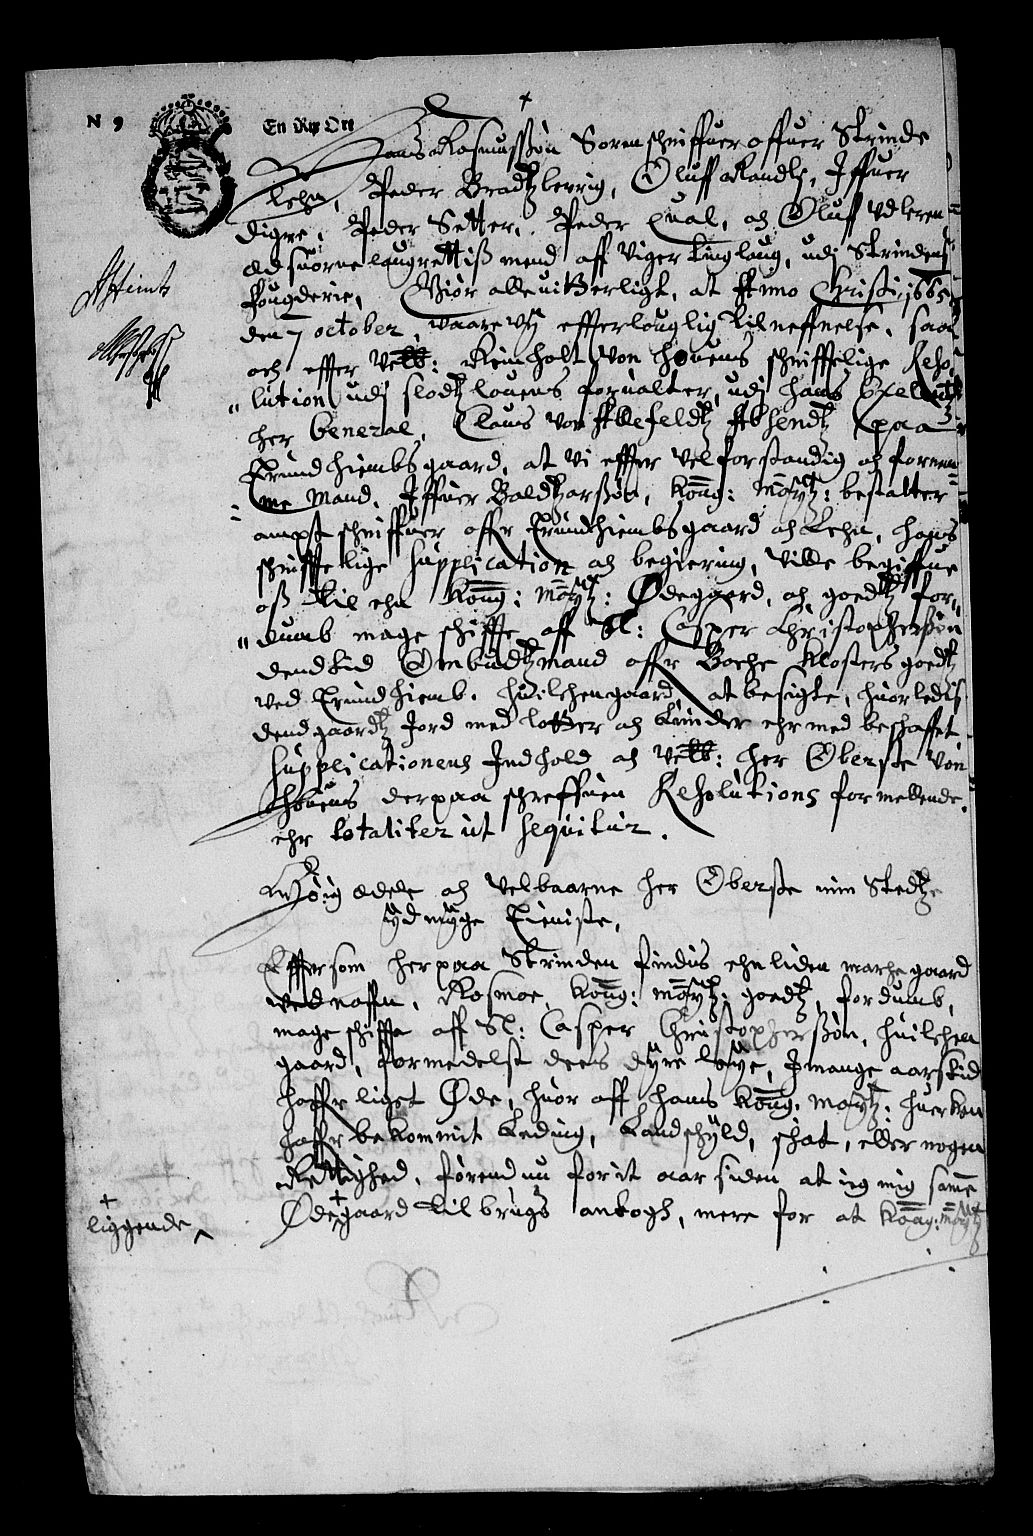 N 9
En Rix Ort
Hans Rosmussøn Sorenschriffuer offuer Strinde
Lehn, Peder Bradtzlevrig, Oluff Randli, Iffuer
Digre, Peder Setter, Peder Qual, och Oluff Udleren
Edsuorne laugrettis mend aff Viger tinglaug, udi Strindens
fougderie, Giør alle uitterligt, at Anno Christi 1665
den 7 october, waare vy effter louglig tilneffnelse, saa
och effter Velb: Reinholt von Houens schrifftelige Reso-
lution udi slodtzlouens forualter, udi hans Exellentz
her General, Claus von Allefeldtz Absendtz paa
Trundhiembs gaard, at vi effter velforstandig och fornem-
me Mand, Iffuer Baldtzarsøn, Kong: Maytz: bestalter
ampt schriffuer offr Trundhiembs gaard och Lehn, hans
schrifftelige Supplication och begiering, ville begiffue
os til ehn Kong: Maytz: Ødegaard, och goedtz for-
dumb mage schiffte aff Sl: Casper Christophersøn
dend tid Ombudtzmand offr Bache Klosters goedtz
ved Trundhiemb. Huilchen gaard at besigte, huorledis
dend gaardtz Jord med lotter och lunder ehr med beschaffet
Supplicationens Indhold och Velb: her Oberste Von
Houens derpaa schreffuen Resolutions formellende.
ehr totaliter ut sequitur.
Høig Edele och Velbaarne her Oberste min Stedtze
ydmyge Tieniste,
Effter som her paa Strinden findis ehn liden marche gaard
ved naffn, Rosmoe, Kong: Maytz: goedtz, fordumb,
mage schiffte aff Sl: Casper Christophersøn, huilchen
gaard, formedelst dens dyre leye, I mange aars tid
haffr liget Øde, huor aff hans Kong: Maytz: huerken
haffr bekommit Leding, Landschyld, schat, eller nogen
Rettighed, førend nu for it aar siden at ieg mig samme
Øde gaard til brugs antogh, mere for at Kong: Maytz
liggende